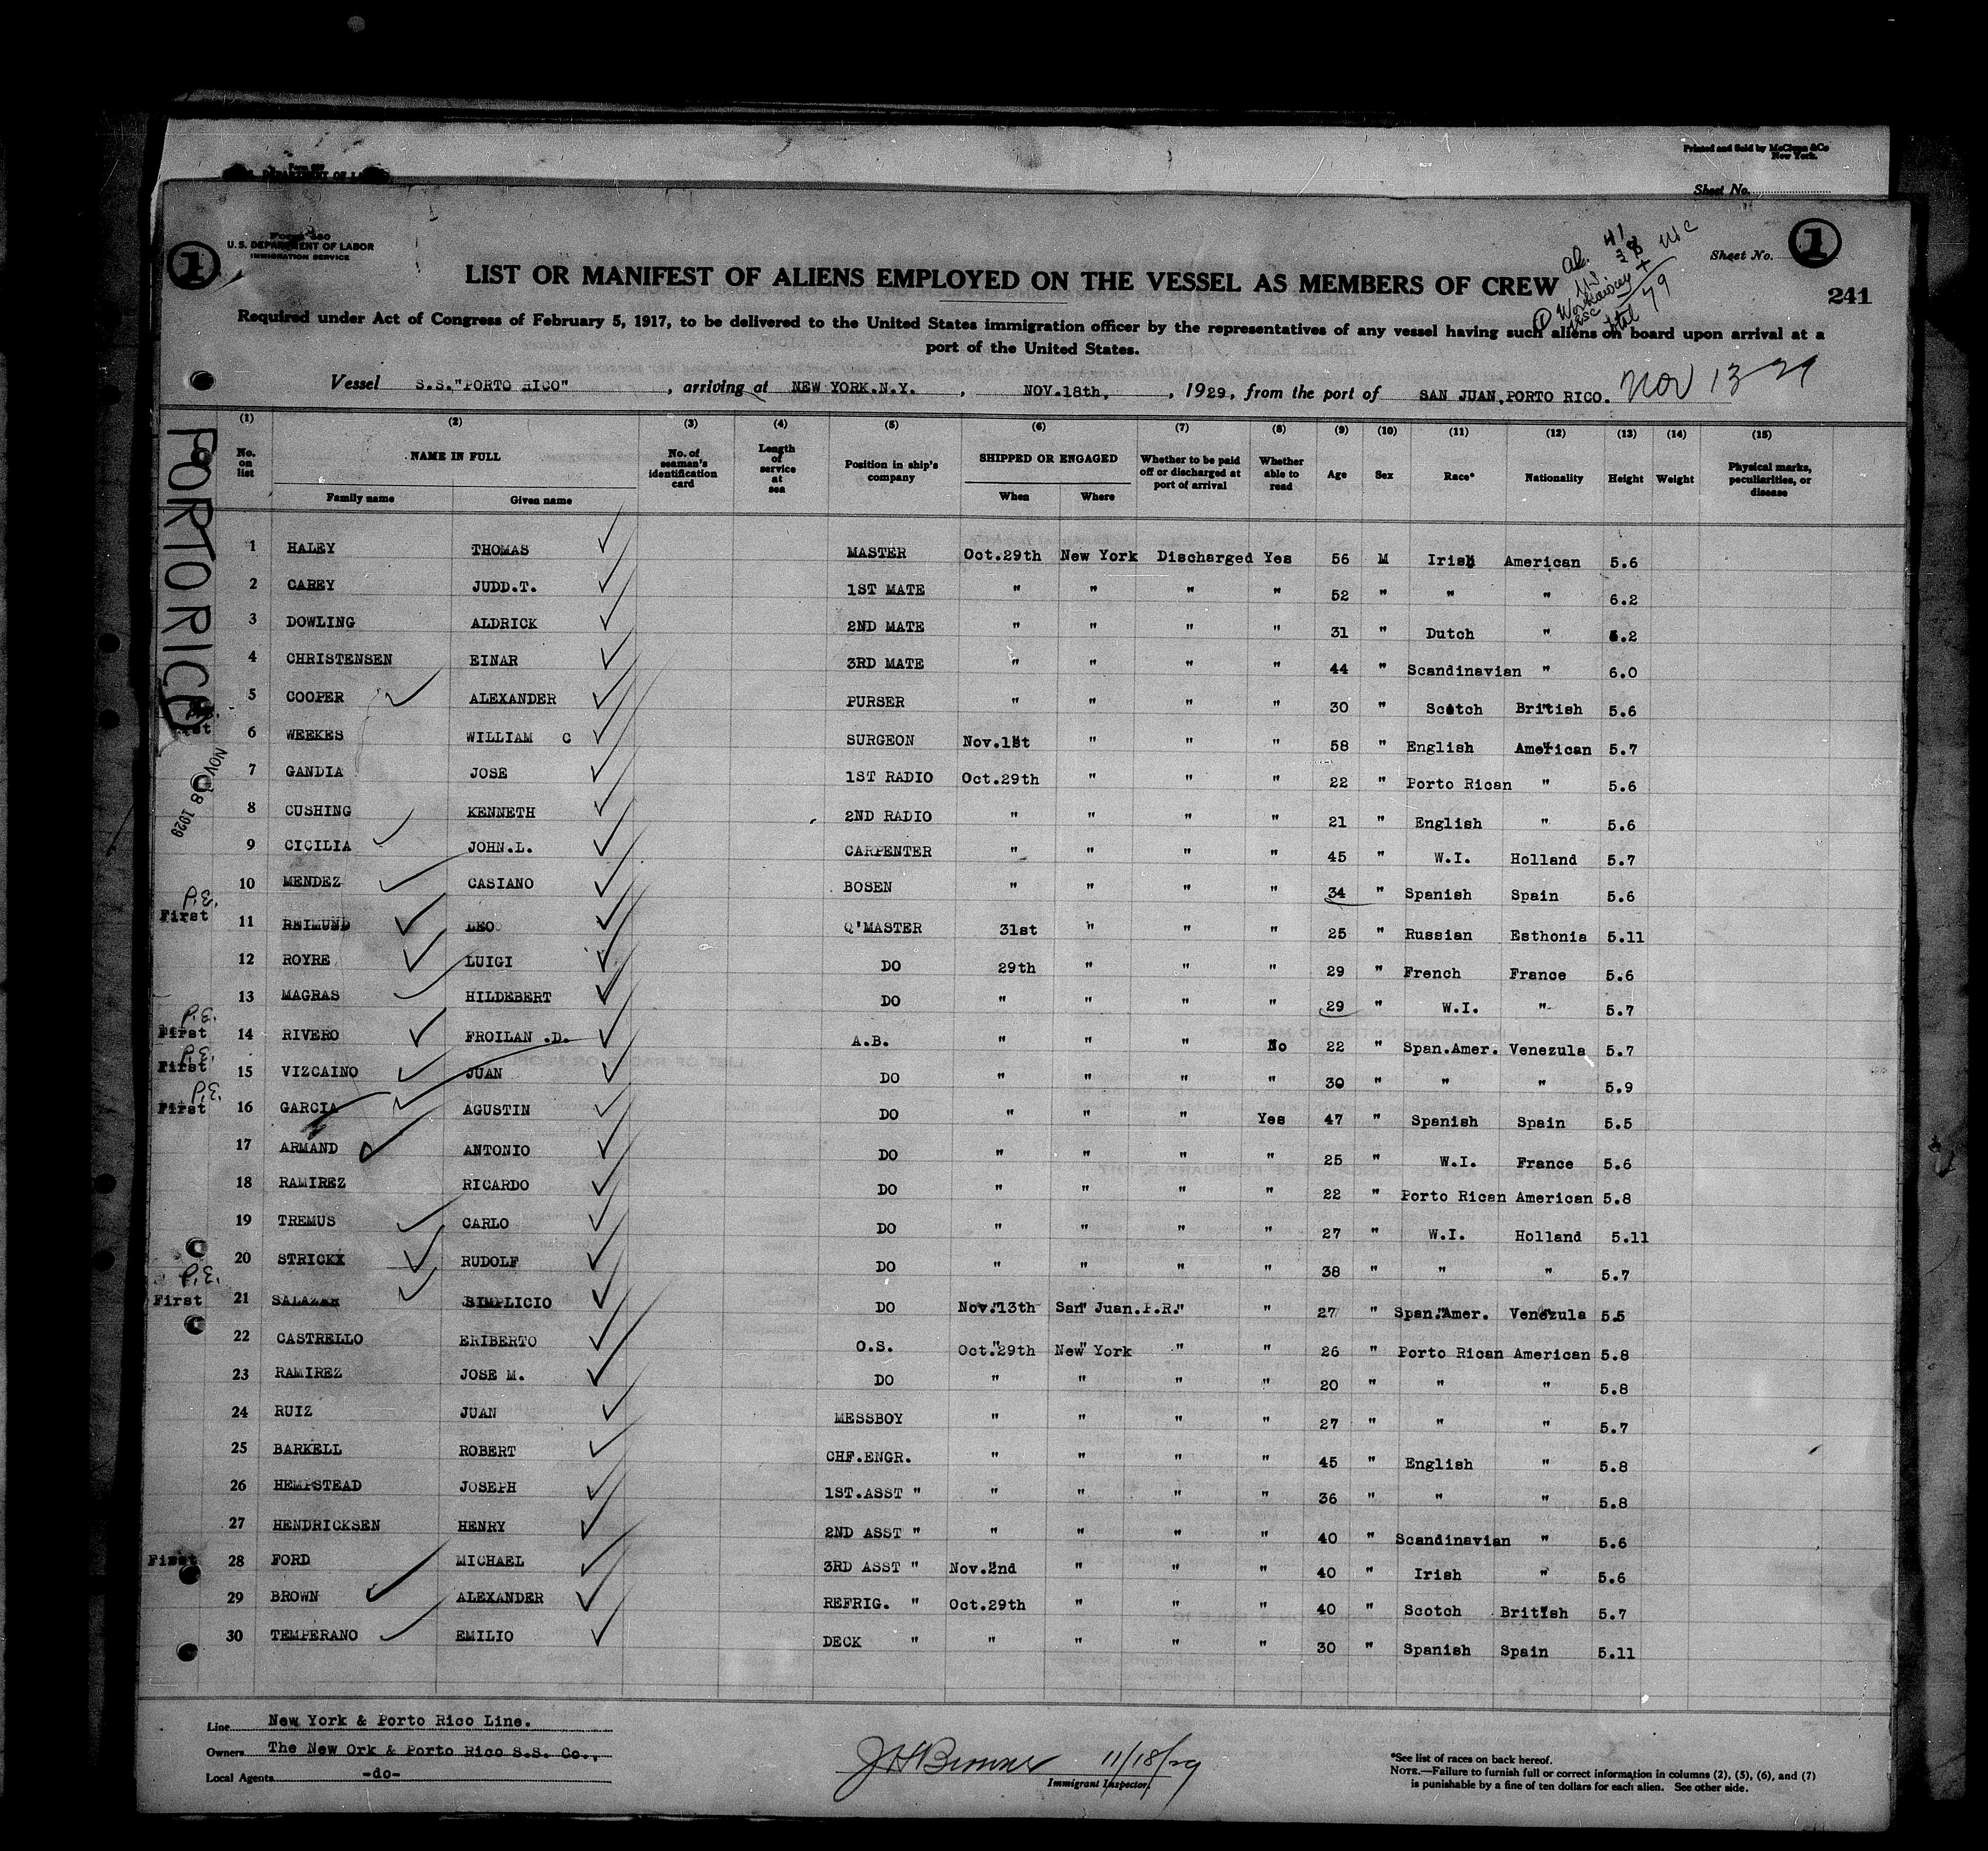 Printed and Sold by McClunn &Co
New York.
Sheet No.
Form 680
U.S. DEPARTMENT OF LABOR
IMMIGRATION SERVICE
1
Sheet No. 1
LIST OR MANIFEST OF ALIENS EMPLOYED ON THE VESSEL AS MEMBERS OF CREW
241
Required under Act of Congress of February 5, 1917, to be delivered to the United States immigration officer by the representatives of any vessel having such aliens on board upon arrival at a
port of the United States.
Vessel S.S."PORTO RICO", arriving at NEW YORK.N.Y., NOV.18th, 1929, from the port of SAN JUAN,PORTO RICO. Nov 13 29
PORTO RICO
NOV 18 1929
(1) (2) (3) (4) (5) (6) (7) (8) (9) (10) (11) (12) (13) (14) (15)
No. on list NAME IN FULL Family name Given name No. of seaman's identification card Length of service at sea Position in ship's company SHIPPED OR ENGAGED When Where Whether to be paid off or discharged at port of arrival Whether able to read Age Sex Race* Nationality Height Weight Physical marks, peculiarities, or disease
1 HALEY THOMAS MASTER Oct.29th New York Discharged Yes 56 M Irish American 5.6
2 CAREY JUDD.T. 1ST MATE " " " " 52 " " " 6.2
3 DOWLING ALDRICK 2ND MATE " " " " 31 " Dutch " 6.2
4 CHRISTENSEN EINAR 3RD MATE " " " " 44 " Scandinavian " 6.0
5 COOPER ALEXANDER PURSER " " " " 30 " Scotch British 5.6
6 WEEKES WILLIAM C SURGEON Nov.1st " " " 58 " English American 5.7
7 GANDIA JOSE 1ST RADIO Oct.29th " " " 22 " Porto Rican " 5.6
8 CUSHING KENNETH 2ND RADIO " " " " 21 " English " 5.6
9 CICILIA JOHN.L. CARPENTER " " " " 45 " W.I. Holland 5.7
10 MENDEZ CASIANO BOSEN " " " " 34 " Spanish Spain 5.6
P.E. First 11 REIMUND LEO Q'MASTER 31st " " " 25 " Russian Esthonia 5.11
12 ROYRE LUIGI DO 29th " " " 29 " French France 5.6
13 MAGRAS HILDEBERT DO " " " " 29 " W.I. " 5.7
P.E. First 14 RIVERO FROILAN .D. A.B. " " " No 22 " Span.Amer. Venezula 5.7
P.E. First 15 VIZCAINO JUAN DO " " " " 30 " " " 5.9
P.E. First 16 GARCIA AGUSTIN DO " " " Yes 47 " Spanish Spain 5.5
17 ARMAND ANTONIO DO " " " " 25 " W.I. France 5.6
18 RAMIREZ RICARDO DO " " " " 22 " Porto Rican American 5.8
19 TREMUS CARLO DO " " " " 27 " W.I. Holland 5.11
20 STRICKX RUDOLF DO " " " " 38 " " " 5.7
P.E. First 21 SALAZAR SIMPLICIO DO Nov.13th San Juan.P.R. " " 27 " Span.Amer. Venezula 5.5
22 CASTRELLO ERIBERTO O.S. Oct.29th New York " " 26 " Porto Rican American 5.8
23 RAMIREZ JOSE M. DO " " " " 20 " " " 5.8
24 RUIZ JUAN MESSBOY " " " " 27 " " " 5.7
25 BARKELL ROBERT CHF.ENGR. " " " " 45 " English " 5.8
26 HEMPSTEAD JOSEPH 1ST.ASST " " " " " 36 " " " 5.8
27 HENDRICKSEN HENRY 2ND ASST " " " " " 40 " Scandinavian " 5.6
First 28 FORD MICHAEL 3RD ASST " Nov.2nd " " " 40 " Irish " 5.6
29 BROWN ALEXANDER REFRIG. " Oct.29th " " " 40 " Scotch British 5.7
30 TEMPERANO EMILIO DECK " " " " " 30 " Spanish Spain 5.11
Line New York & Porto Rico Line.
Owners The New Ork & Porto Rico S.S. Co.,
Local Agents -do-
11/18/29
Immigrant Inspector.
*See list of races on back hereof.
NOTE.—Failure to furnish full or correct information in columns (2), (5), (6), and (7)
is punishable by a fine of ten dollars for each alien. See other side.